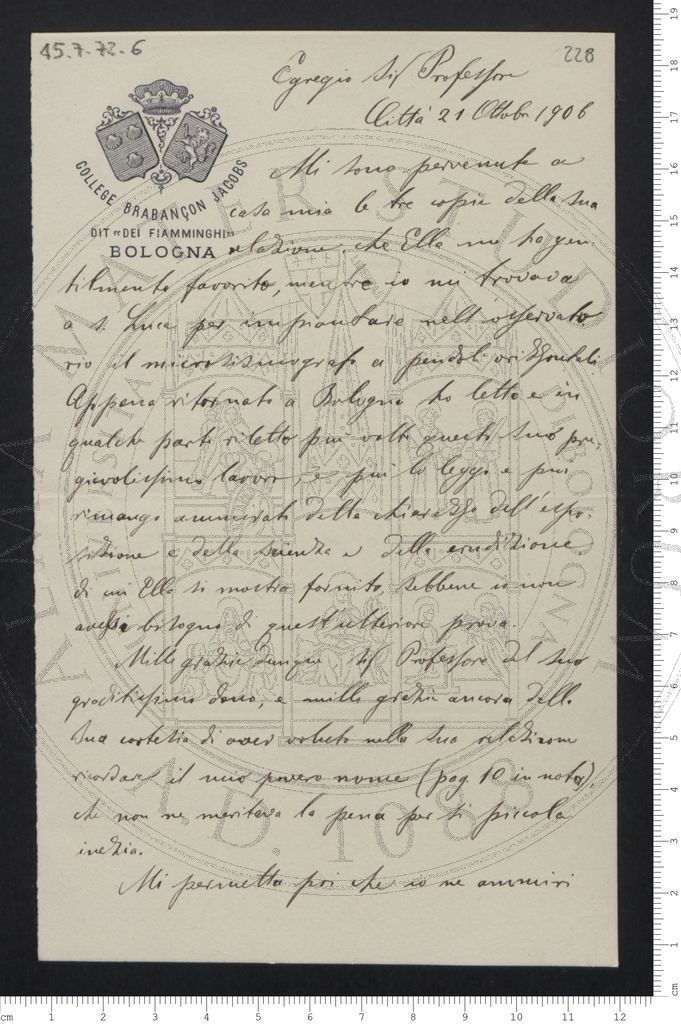 45.7.72.6
228
Egregio Sig Professore
Città 21 Ottobre 1906
COLLEGE BRABANÇON JACOBS
DIT «DEI FIAMMINGHI»
BOLOGNA
Mi sono pervenute a
casa mia le tre copie della sua
relazione, che Ella mi ha gen-
tilmente favorito, mentre io mi trovava
a S. Luca per impiantare nell'osservato
rio il microsismografo a pendoli orizzontali
Appena ritornato a Bologna ho letto e in
qualche parte riletto più volte questo suo pre-
gievolissimo lavoro, e più lo leggo e più
rimango ammirato della chiarezza dell'espo-
sizione e della scienza e della erudizione
di cui Ella si mostra fornito, sebbene io non
avessi bisogno di quest'ulteriore prova.
Mille grazie dunque Sig Professore del suo
graditissimo dono, e mille grazie ancora della
sua cortesia di aver voluto nella sua relazione
ricordare il mio povero nome (pag. 10 in nota),
che non ne meritava la pena per sì piccola
inezia.
Mi permetta poi che io ne ammiri
ALMA MATER STUDIORUM
A.D. 1088